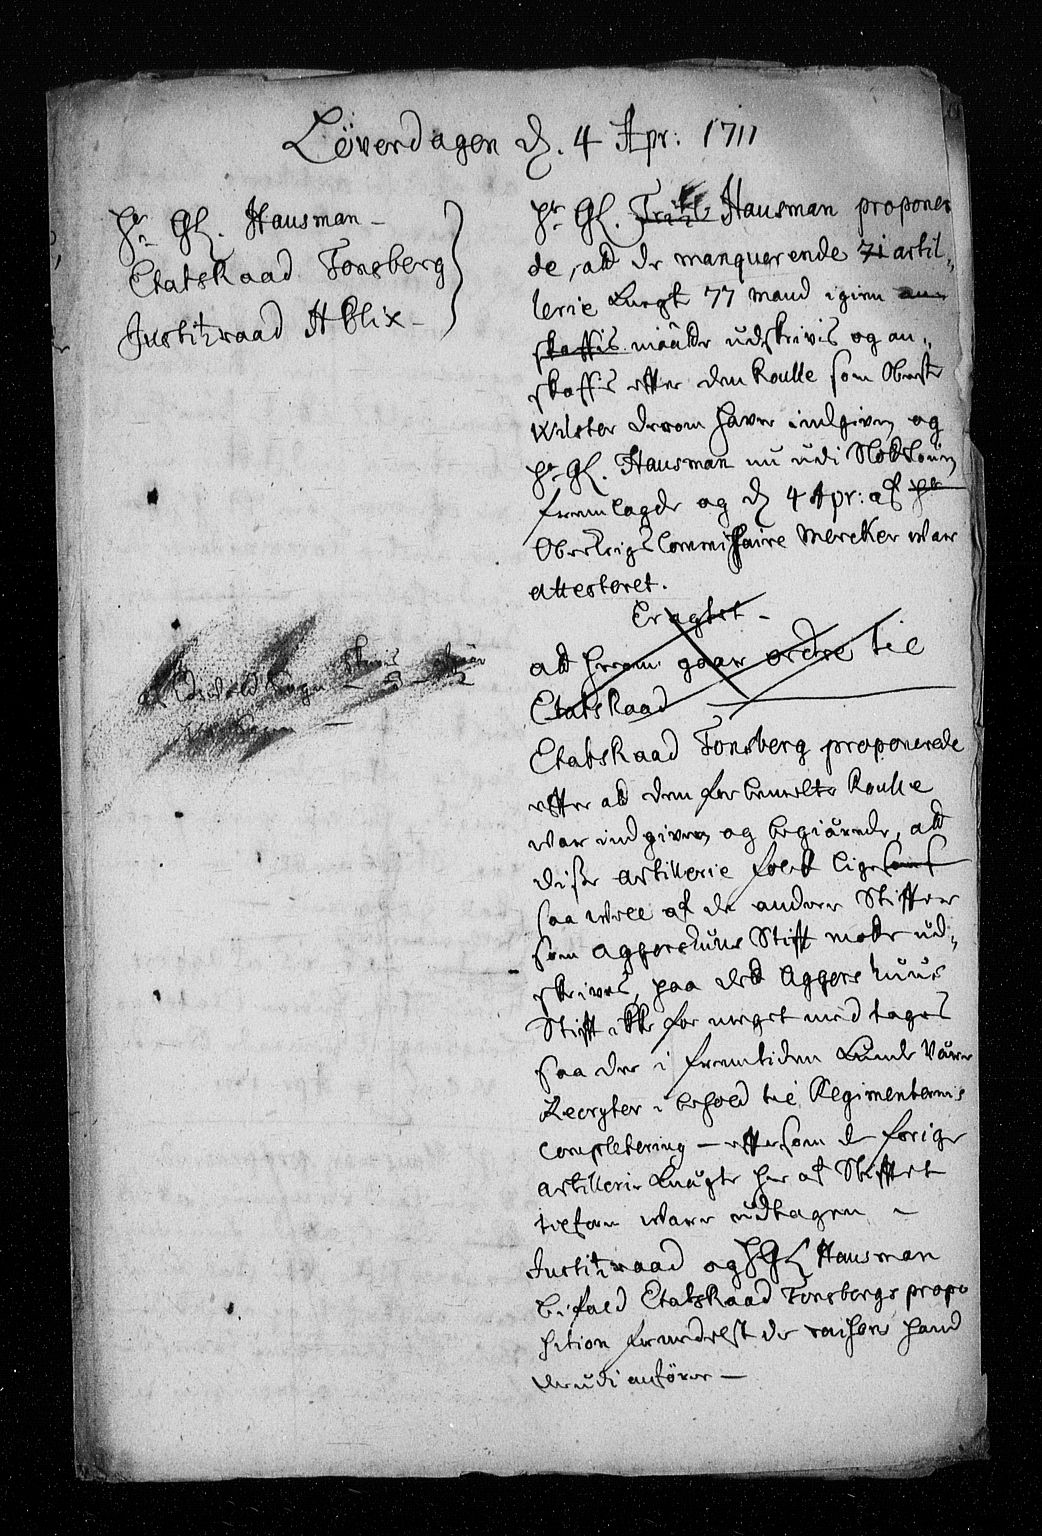 Löverdagen d. 4 Apr: 1711
Hr. Gl. Hausman –
Etatsraad Tonsberg
Justitzraad H Blix –
Hr. Gl. Hausman propone-
de, att de manquerende artil-
lerie knegte 77 mand igien
skaffis maatte udskrivis og an-
skaffis efter den Roulle som Oberste
Wilster derom haver indgiven og
Hr. Gl. Hausman nu udi Slodsloven
fremlagde og d. 4 Apr: af
Oberkrigs Commissaire Mercker war
attesteret.
Eragtet –
att herom gaar ordre til
Etatsraad
Etatsraad Tonsberg proponerede
efter att den forbemelte Roulle
war indgiven og begiärede, att
disse artillerie folck lige som
saa well af de andere Stifter
som Aggershuus Stift motte ud-
skrives, paa det Aggershuus
Stift ikke for meget med tages
saa der i fremtiden kunde være
Recryter i behold til Regimenternis
completering – eftersom de forige
artillerie knegte her af Stiftet
tilforn ware udtagen –
Justitzraad og H Gl Hausman
bifald Etatsraad Tonsbergs propo
sition formedelst de raisons hand
derudi anförer –